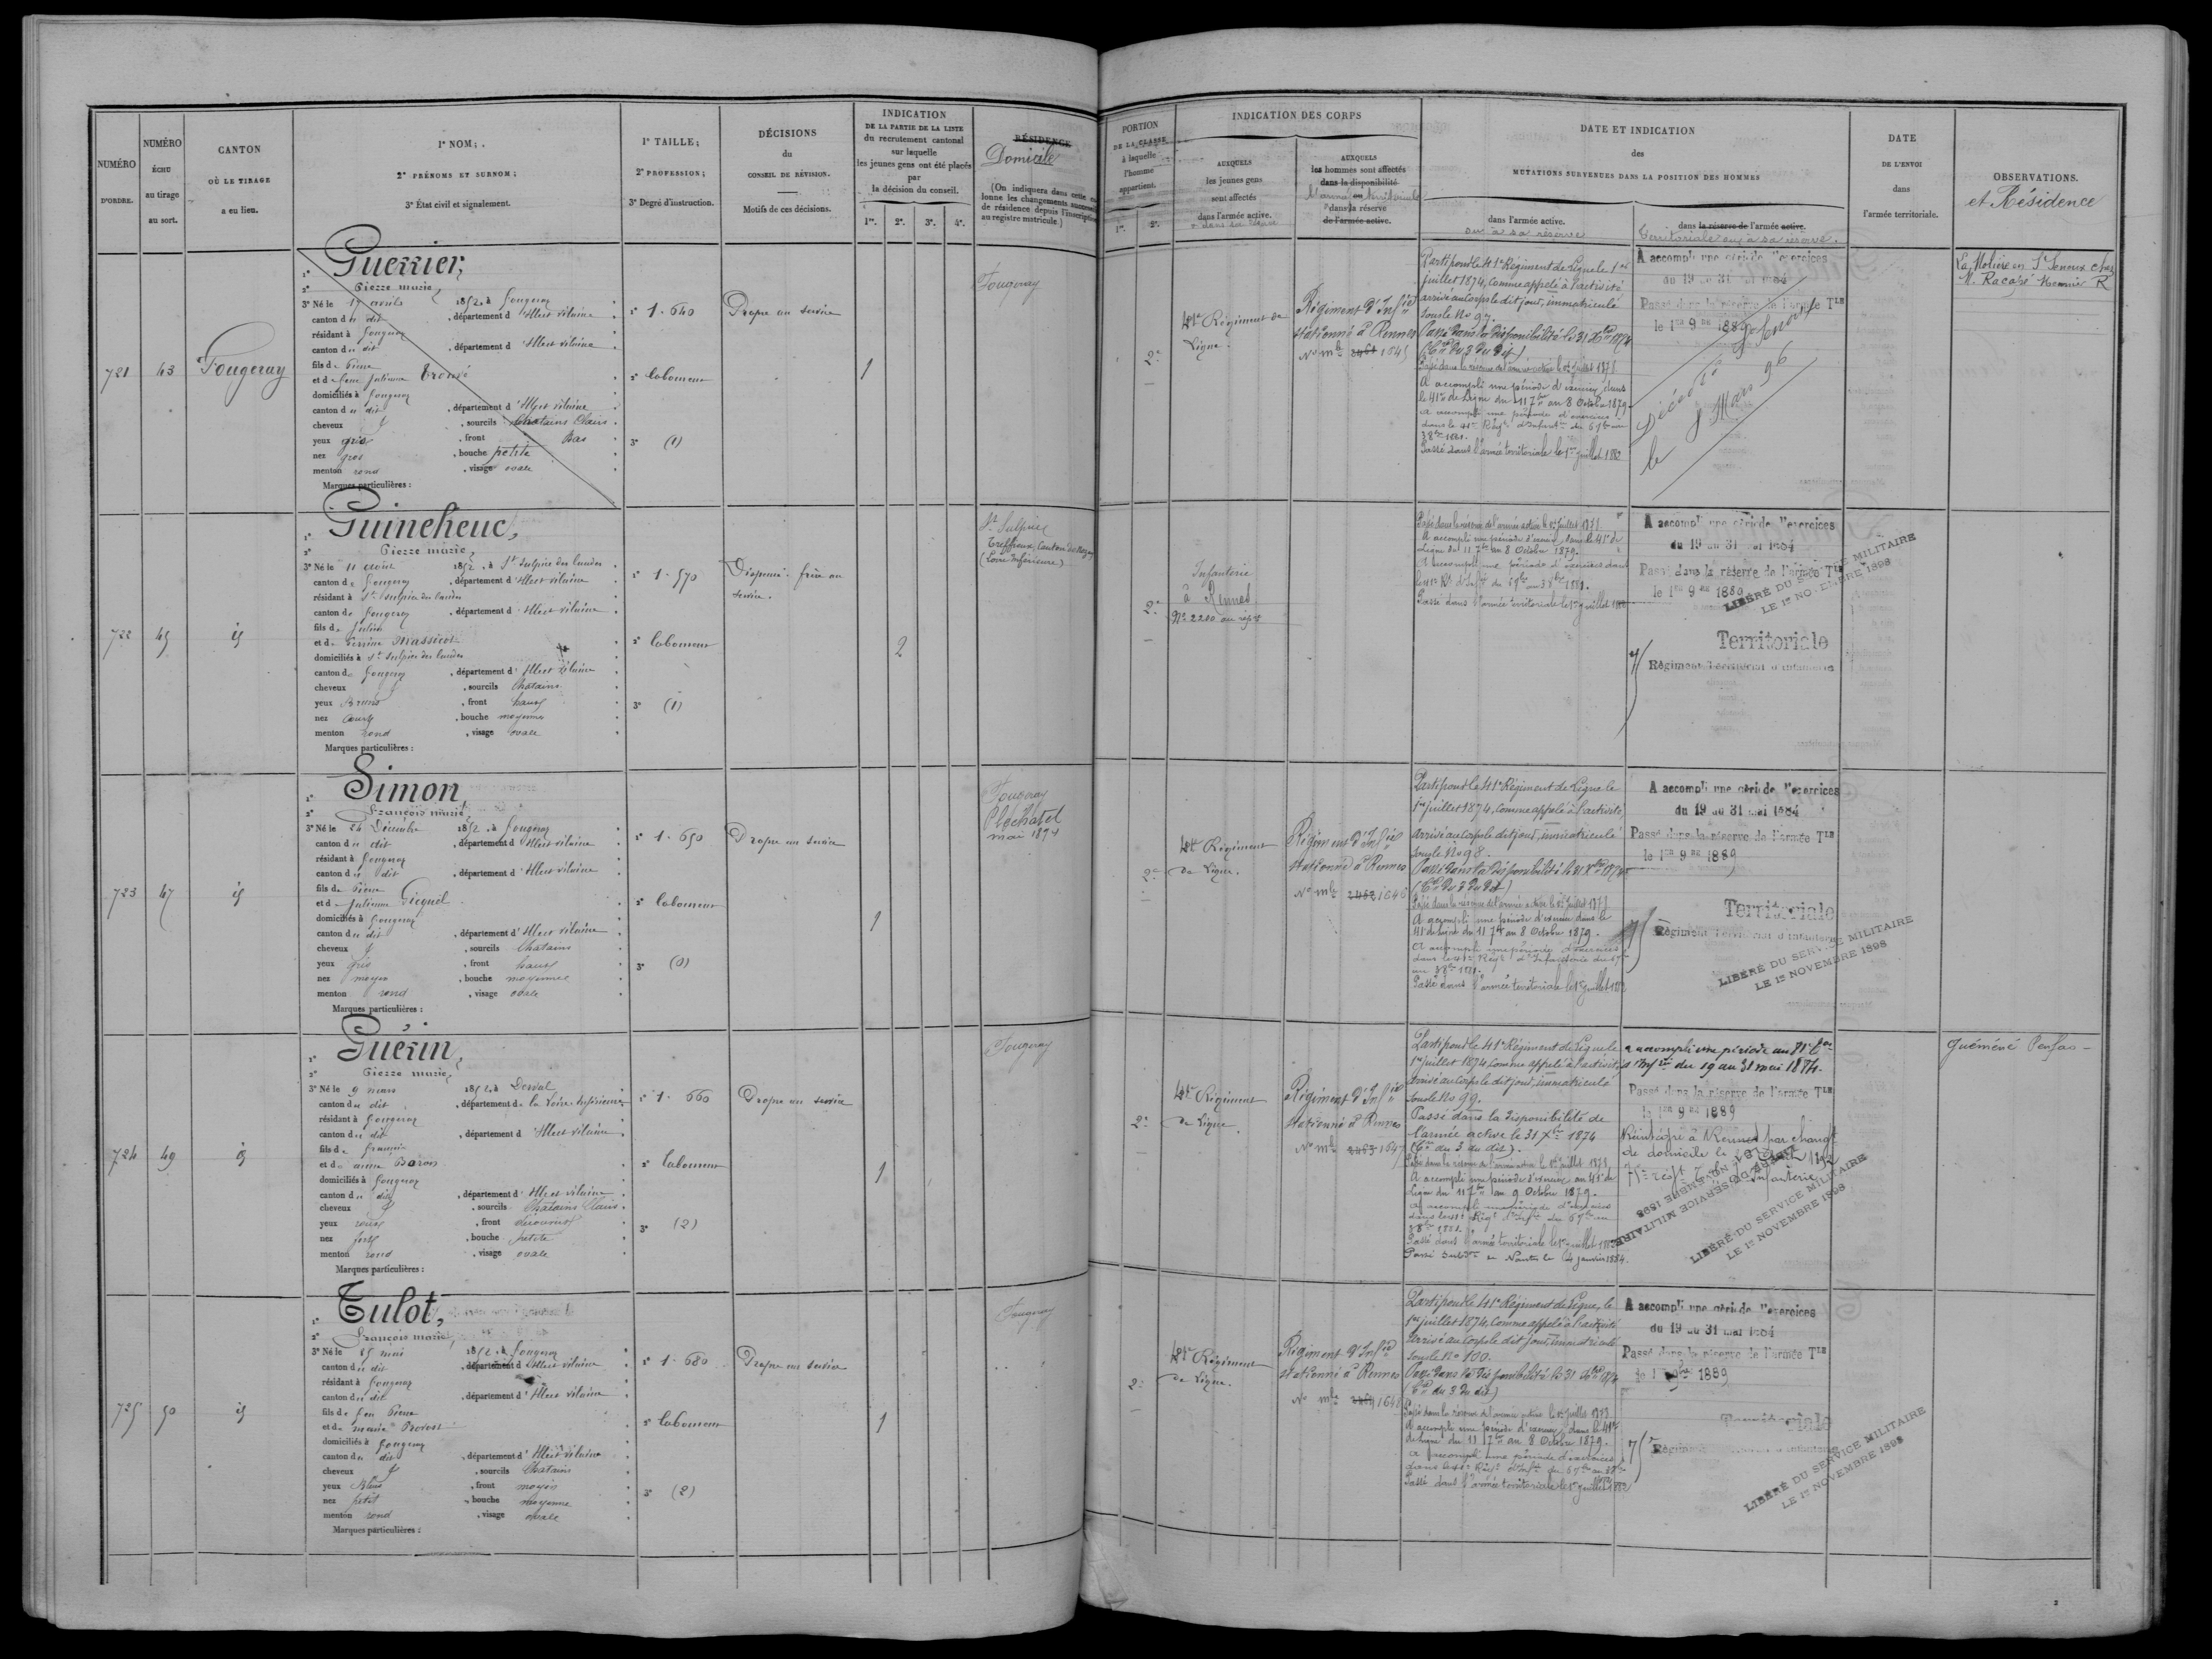 NUMÉRO D'ORDRE.
NUMÉRO échu au tirage au sort.
CANTON OÙ LE TIRAGE a eu lieu.
1° NOM;
2° PRÉNOMS ET SURNOM;
3° État civil et signalement.
1° TAILLE;
2° PROFESSION;
3° Degré d'instruction.
DÉCISIONS du CONSEIL DE RÉVISION.
Motifs de ces décisions.
INDICATION
DE LA PARTIE DE LA LISTE
du recrutement cantonal
sur laquelle
les jeunes gens ont été placés
par
la décision du conseil.
1re. 2e. 3e. 4e.
RÉSIDENCE
Domicile
(On indiquera dans cette
lonne les changements
de résidence depuis
au registre matricule.)
721
43
Fougeray
1° Guerrier,
2° Pierre marie,
3° Né le 19 avril 1852, à fougeray
canton du dit, département d'Ille et vilaine
résidant à fougeray
canton du dit, département d'Ille et vilaine
fils de Pierre
et de feue Julienne
domiciliés à fougeray
canton du dit, département d'Ille et vilaine
cheveux, sourcils Chatains Clairs
yeux gris, front Bas
nez gros, bouche petite
menton rond, visage ovale
Marques particulières :
1° 1. 640
2° laboureur
3° (1)
Propre au service
1
Fougeray
722
45
id
1° Guineheuc,
2° Pierre marie,
3° Né le 11 août 1852, à St Sulpice des landes
canton de fougeray, département d'Ille et vilaine
résidant à St Sulpice des landes
canton de fougeray, département d'Ille et vilaine
fils de Julien
et de Perrine Massicot
domiciliés à St Sulpice des landes
canton de fougeray, département d'Ille et vilaine
cheveux, sourcils Chatains
yeux Bruns, front haut
nez court, bouche moyenne
menton rond, visage ovale
Marques particulières :
1° 1. 570
2° laboureur
3° (1)
Dispensé. frère au
service.
2
St Sulpice
Treffieux, Canton de Nozay
(Loire Inférieure)
723
47
id
1° Simon,
2° François marie,
3° Né le 24 Décembre 1852, à fougeray
canton du dit, département d'Ille et vilaine
résidant à fougeray
canton du dit, département d'Ille et vilaine
fils de Pierre
et de Julienne Gicquel
domiciliés à fougeray
canton du dit, département d'Ille et vilaine
cheveux, sourcils Chatains
yeux gris, front haut
nez moyen, bouche moyenne
menton rond, visage ovale
Marques particulières :
1° 1. 650
2° laboureur
3° (0)
Propre au service
1
Fougeray
Pléchatel
mai 1874
724
49
id
1° Guérin,
2° Pierre marie,
3° Né le 9 mars 1852, à Derval
canton du dit, département de la Loire Inférieure
résidant à fougeray
canton du dit, département d'Ille et vilaine
fils de françois
et de anne Baron
domiciliés à fougeray
canton du dit, département d'Ille et vilaine
cheveux, sourcils Chatains Clairs
yeux roux, front découvert
nez fort, bouche petite
menton rond, visage ovale
Marques particulières :
1° 1. 660
2° laboureur
3° (2)
Propre au service
1
Fougeray
725
50
id
1° Tulot,
2° François marie,
3° Né le 15 mai 1852, à fougeray
canton du dit, département d'Ille et vilaine
résidant à fougeray
canton du dit, département d'Ille et vilaine
fils de feu Pierre
et de marie Provost
domiciliés à fougeray
canton du dit, département d'Ille et vilaine
cheveux, sourcils Chatains
yeux Bleus, front moyen
nez petit, bouche moyenne
menton rond, visage ovale
Marques particulières :
1° 1. 680
2° laboureur
3° (2)
Propre au service
1
Fougeray
PORTION
DE LA CLASSE
à laquelle
l'homme
appartient.
1re. 2e.
INDICATION DES CORPS
AUXQUELS
les jeunes gens
sont affectés
dans l'armée active.
ou dans sa réserve
AUXQUELS
les hommes sont affectés
dans la disponibilité
ou
dans la réserve
de l'armée active.
DATE ET INDICATION
des
MUTATIONS SURVENUES DANS LA POSITION DES HOMMES
dans l'armée active.
ou à sa réserve
dans la réserve de l'armée active.
Territoriale ou à sa réserve.
DATE
DE L'ENVOI
dans
l'armée territoriale.
OBSERVATIONS.
et Résidence
2e
41e Régiment de
Ligne.
Régiment d'Infie
stationné à Rennes
No mle 2461 1645
Parti pour le 41e Régiment de Ligne le 1er
juillet 1874, Comme appelé à l'activité
arrivé au Corps le dit jour, immatriculé
sous le No 97.
Passé dans la disponibilité le 31 Xbre 1874
(Cre du 3 du dit)
Passé dans la réserve de l'armée active le 1er juillet 1878
A accompli une période d'exercices dans
le 41e de Ligne du 11 7bre au 8 Octobre 1879
A accompli une période d'exercices
dans le 41e Régt d'Infanterie du 6 7bre au
3 8bre 1881.
Passé dans l'armée territoriale le 1er juillet 1882
A accompli une période d'exercices
du 19 au 31 mai 1884
Passé dans la réserve de l'armée Tle
le 1er 9bre 1889
Décédé à St Senoux
le 8 Mars 96
La Molière en St Senoux chez
M. Racapé R
2e
Infanterie
à Rennes
No 2210 au rept
Passé dans la réserve de l'armée active le 1er juillet 1878
A accompli une période d'exercices dans le 41e de
Ligne du 11 7bre au 8 Octobre 1879.
A accompli une période d'exercices dans
le 41e Rt d'Inftie du 6 7bre au 3 8bre 1881.
Passé dans l'armée territoriale le 1er juillet 1882
A accompli une période d'exercices
du 19 au 31 mai 1884
Passé dans la réserve de l'armée Tle
le 1er 9bre 1889
LIBÉRÉ DU SERVICE MILITAIRE
LE 1er NOVEMBRE 1898
Territoriale
75e Régiment Territorial d'infanterie
2e
41e Régiment
de Ligne.
Régiment d'Infie
stationné à Rennes
No mle 2462 1646
Parti pour le 41e Régiment de Ligne le
1er juillet 1874, Comme appelé à l'activité,
Arrivé au Corps le dit jour, immatriculé
sous le No 98.
Passé dans la disponibilité le 31 Xbre 1874
(Cre du 3 du dit)
Passé dans la réserve de l'armée active le 1er juillet 1878
A accompli une période d'exercices dans le
41e de Ligne du 11 7bre au 8 Octobre 1879.
A accompli une période d'exercices
dans le 41e Régt d'Infanterie du 6 7bre
au 3 8bre 1881.
Passé dans l'armée territoriale le 1er juillet 1882
A accompli une période d'exercices
du 19 au 31 mai 1884
Passé dans la réserve de l'armée Tle
le 1er 9bre 1889
Territoriale
75e Régiment Territorial d'infanterie
LIBÉRÉ DU SERVICE MILITAIRE
LE 1er NOVEMBRE 1898
2e
41e Régiment
de Ligne.
Régiment d'Infie
stationné à Rennes
No mle 2463 1647
Parti pour le 41e Régiment de Ligne le
1er juillet 1874, Comme appelé à l'activité,
Arrivé au Corps le dit jour, immatriculé
sous le No 99.
Passé dans la disponibilité de
l'armée active le 31 Xbre 1874
(Cre du 3 du dit).
Passé dans la réserve de l'armée active le 1er juillet 1878
A accompli une période d'exercices au 41e de
Ligne du 11 7bre au 9 Octobre 1879.
A accompli une période d'exercices
dans le 41e Régt d'Inftie du 6 7bre au
3 8bre 1881.
Passé dans l'armée territoriale le 1er juillet 1882
Passé Subdon de Nantes le 24 janvier 1884.
a accompli une période au 81e
d'Inftie du 19 au 31 mai 1884.
Passé dans la réserve de l'armée Tle
le 1er 9bre 1889
Réintégré à Rennes par changt
de domicile le 1892
75e régt d'infanterie
LIBÉRÉ DU SERVICE MILITAIRE
LE 1er NOVEMBRE 1898
LIBÉRÉ DU SERVICE MILITAIRE
LE 1er NOVEMBRE 1898
Guéméné Penfao
2e
41e Régiment
de Ligne.
Régiment d'Infie
stationné à Rennes
No mle 2464 1648
Parti pour le 41e Régiment de Ligne, le
1er juillet 1874, Comme appelé à l'activité
Arrivé au Corps le dit jour, immatriculé
sous le No 100.
Passé dans la disponibilité le 31 Xbre 1874
(Cre du 3 du dit)
Passé dans la réserve de l'armée active le 1er juillet 1878
A accompli une période d'exercices dans le 41e
de Ligne du 11 7bre au 8 Octobre 1879.
A accompli une période d'exercices
dans le 41e Régt d'Inftie du 6 7bre au 3 8bre
Passé dans l'armée territoriale le 1er juillet 1882
A accompli une période d'exercices
du 19 au 31 mai 1884
Passé dans la réserve de l'armée Tle
le 1er 9bre 1889
Territoriale
75e Régiment Territorial d'infanterie
LIBÉRÉ DU SERVICE MILITAIRE
LE 1er NOVEMBRE 1898